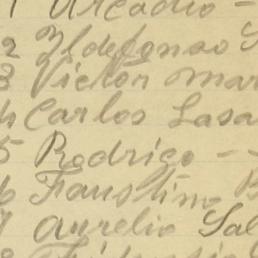 1 Arcadio -
2 Yldefonso S
3 Victor Mar
4 Carlos Lasa
5 Rodrigo - -
6 Faustino B
7 Aurelio Sal
8